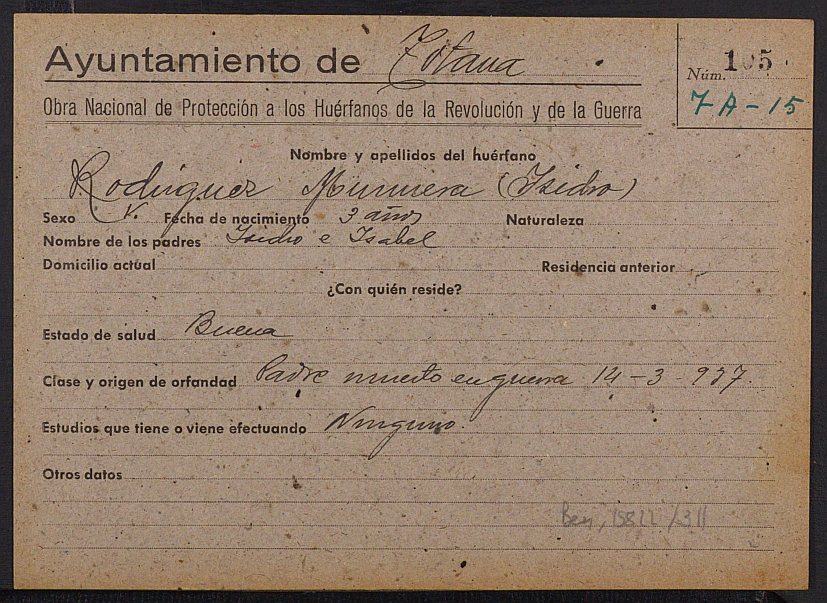 Ayuntamiento de Totana
Núm. 105
7 A - 15
Obra Nacional de Protección a los Huérfanos de la Revolución y de la Guerra
Nombre y apellidos del huérfano
Rodríguez Munuera (Isidro)
Sexo V. Fecha de nacimiento 3 años Naturaleza
Nombre de los padres Isidro e Isabel
Domicilio actual Residencia anterior
¿Con quién reside?
Estado de salud Buena
Clase y origen de orfandad Padre muerto en guerra 14 - 3 - 937.
Estudios que tiene o viene efectuando Ninguno.
Otros datos
Ben, 15822/311